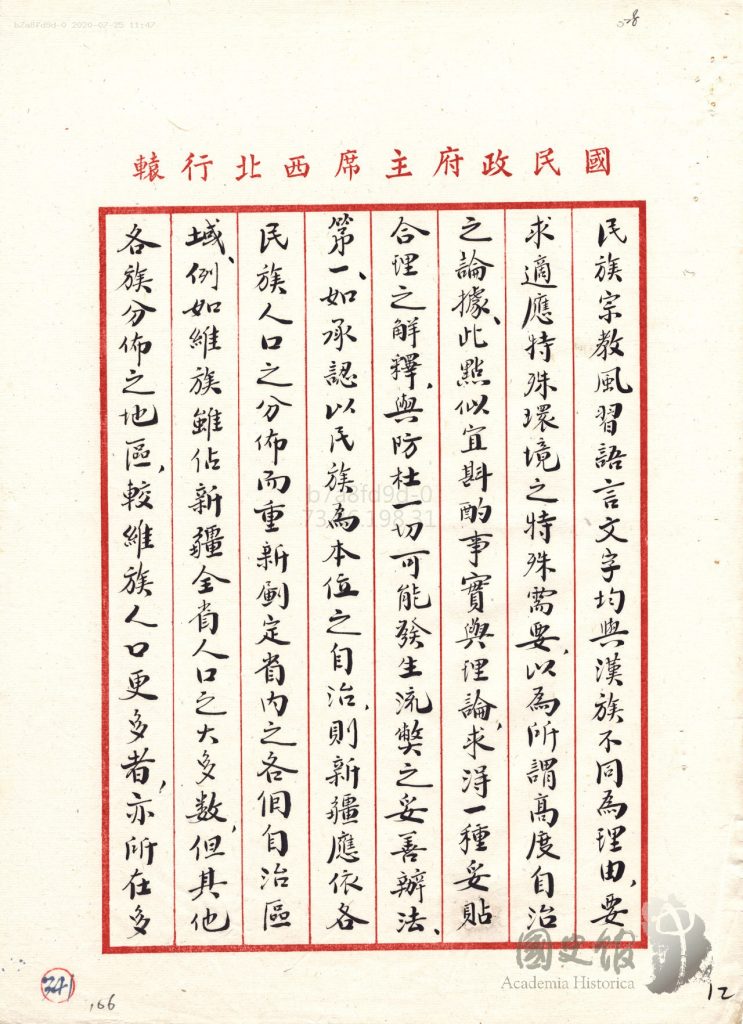 b7a8fd9d-0 2020-07-25 11:47
國民政府主席西北行轅
民族宗教風習語言文字均與漢族不同為理由，要
求適應特殊環境之特殊需要，以為所謂高度自治
之論據、此點似宜斟酌事實與理論，求得一種妥貼
合理之解釋，與防杜一切可能發生流弊之妥善辦法、
第一、如承認以民族為本位之自治，則新疆應依各
民族人口之分佈而重新劃定省內之各個自治區
域、例如維族雖佔新疆全省人口之大多數，但其他
各族分佈之地區，較維族人口更多者，亦所在多
b7a8fd9d-0
國史館
Academia Historica
341
166
12